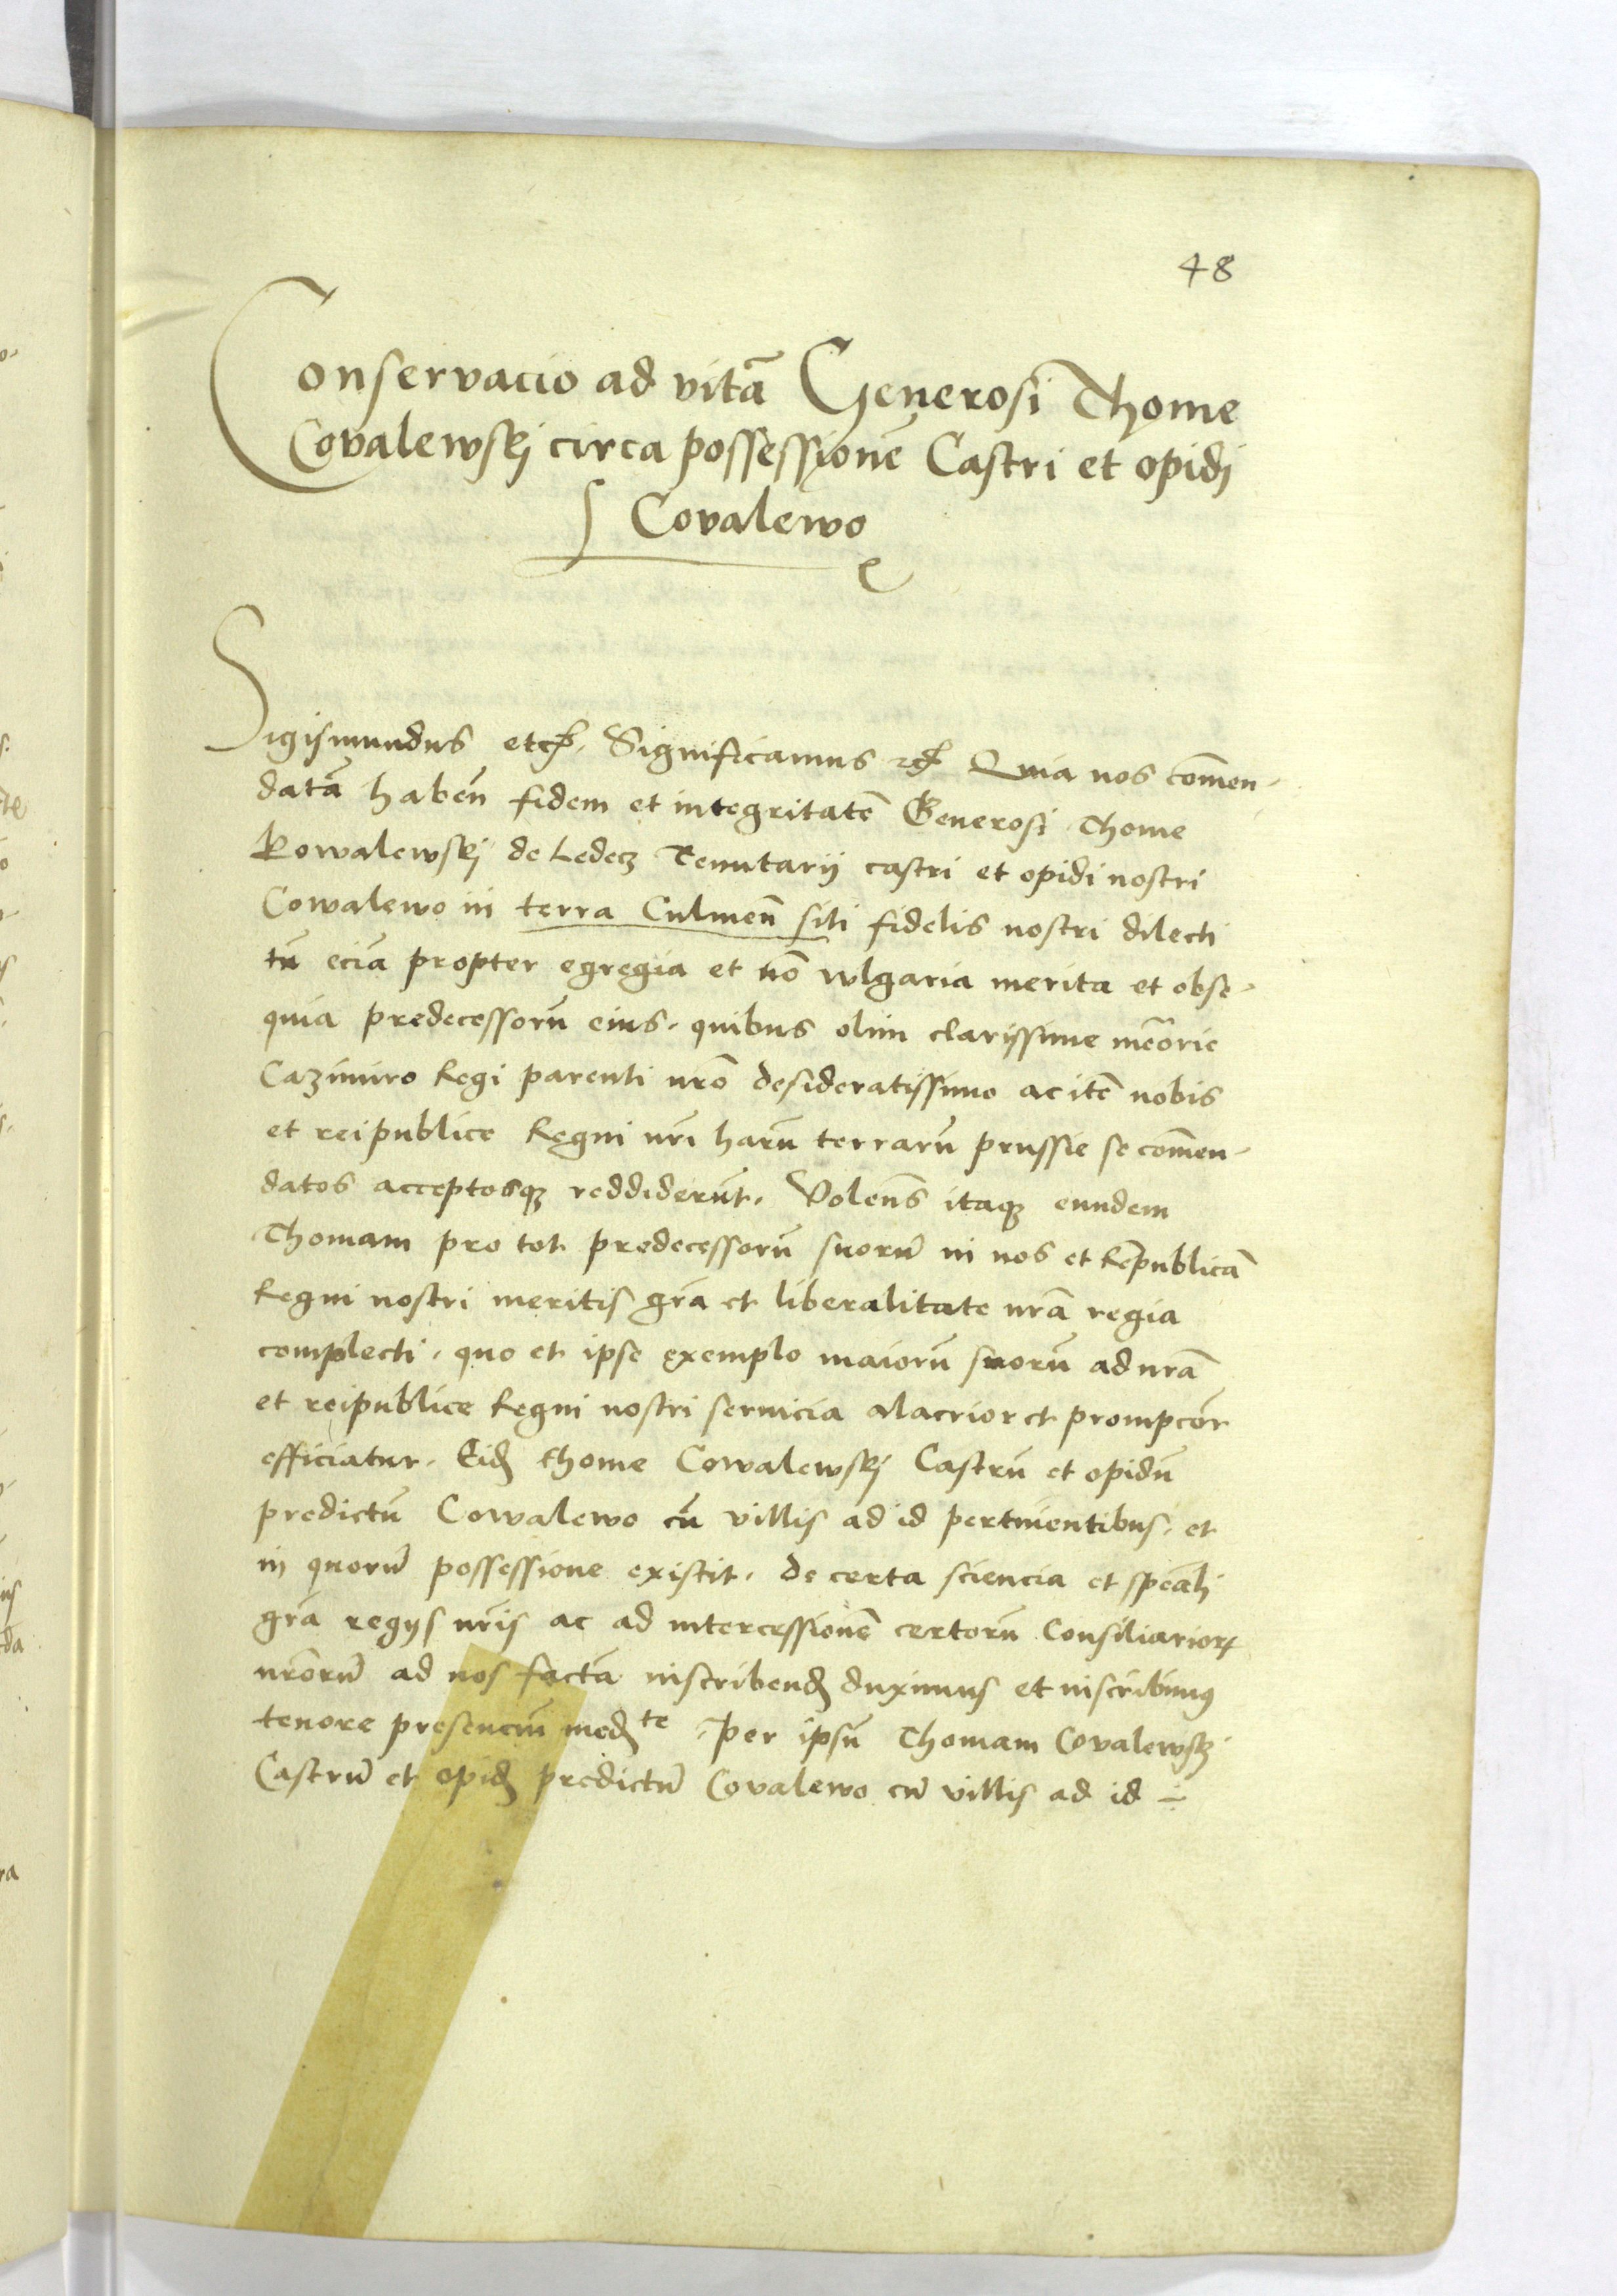 48
Conservacio ad vitā Generosi Thome
Covalewskj circa possessionē Castri et opidj
Covalewo
Sigismundus etc. Significamus etc Quia nos com̄en-
datā haben̄ fidem et integritatē Generosi Thome
Kowalewskj de Ledecz Tenutarij castri et opidi nostri
Cowalewo in terra Culmen̄ siti fidelis nostri dilecti
tū eciā propter egregia et nō vlgaria merita et obse-
quia predecessorū eius. quibus olim clarissime mēorie
Cazimiro Regi parenti nr̄o desideratissimo ac itē nobis
et reipublice Regni nr̄i harū terrarū prussie se com̄en-
datos acceptosqȝ reddiderūt. Volen̄s itaqȝ eundem
Thomam pro tot predecessorū suorū in nos et Rempublicā
Regni nostri meritis gr̄a et liberalitate nr̄a regia
complecti. quo et ipse exemplo maiorū suorū ad nr̄a
et reipublice Regni nostri servicia alacrior et prompcōr
efficiatur. Eidꝫ thome Cowalewskj Castrū et opidū
predictū Cowalewo cū villis ad id pertinentibus. et
in quorū possessione existit. de certa sciencia et speāli
gr̄a regijs nr̄is ac ad intercessionē certorū Consiliarioꝝ
nr̄orū ad nos factā inscribendꝫ duximus et inscribimꝰ
tenore presenciū medꝫte. per ipsū Thomam Covalewskj
Castrū et opidꝫ predictū Covalewo cū villis ad id